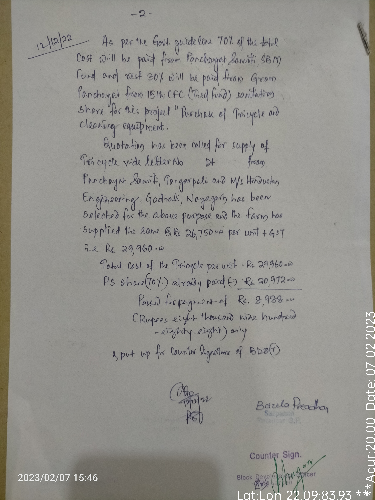 -2-
12/12/22
As per the Govt guideline 70% of the total
Cost will be paid from Panchayat Samiti SBM
Fund and rest 30% will be paid from Gram
Panchayat from 15th CFC (Tied fund) sanitation
Share for this project "Purchase of Tricycle and
Cleaning equipment.
Quotation has been called for supply of
Tricycle vide letter No Dt from
Panchayat Samiti, and M/s Hindustan
Engineering, Nayagarh has been
Selected for the above purpose and the farm has
Supplied the same @ Rs 26,750.00 per unit + GST
i.e Rs 29,960.00
Total Cost of the Tricycle per unit - Rs 29,960.00
PS Share (70%) already paid (-) Rs 20,972.00
Passed for payment of Rs. 8,988.00
(Rupees eight thousand nine hundred
eighty eight) only
put up for Counter Signature of BDO
Pradhan
Counter Sign.
2023/02/07 15:46
Lat:Lon 22.09:83.93 ***Acur:20.00 Date:07_02_2023